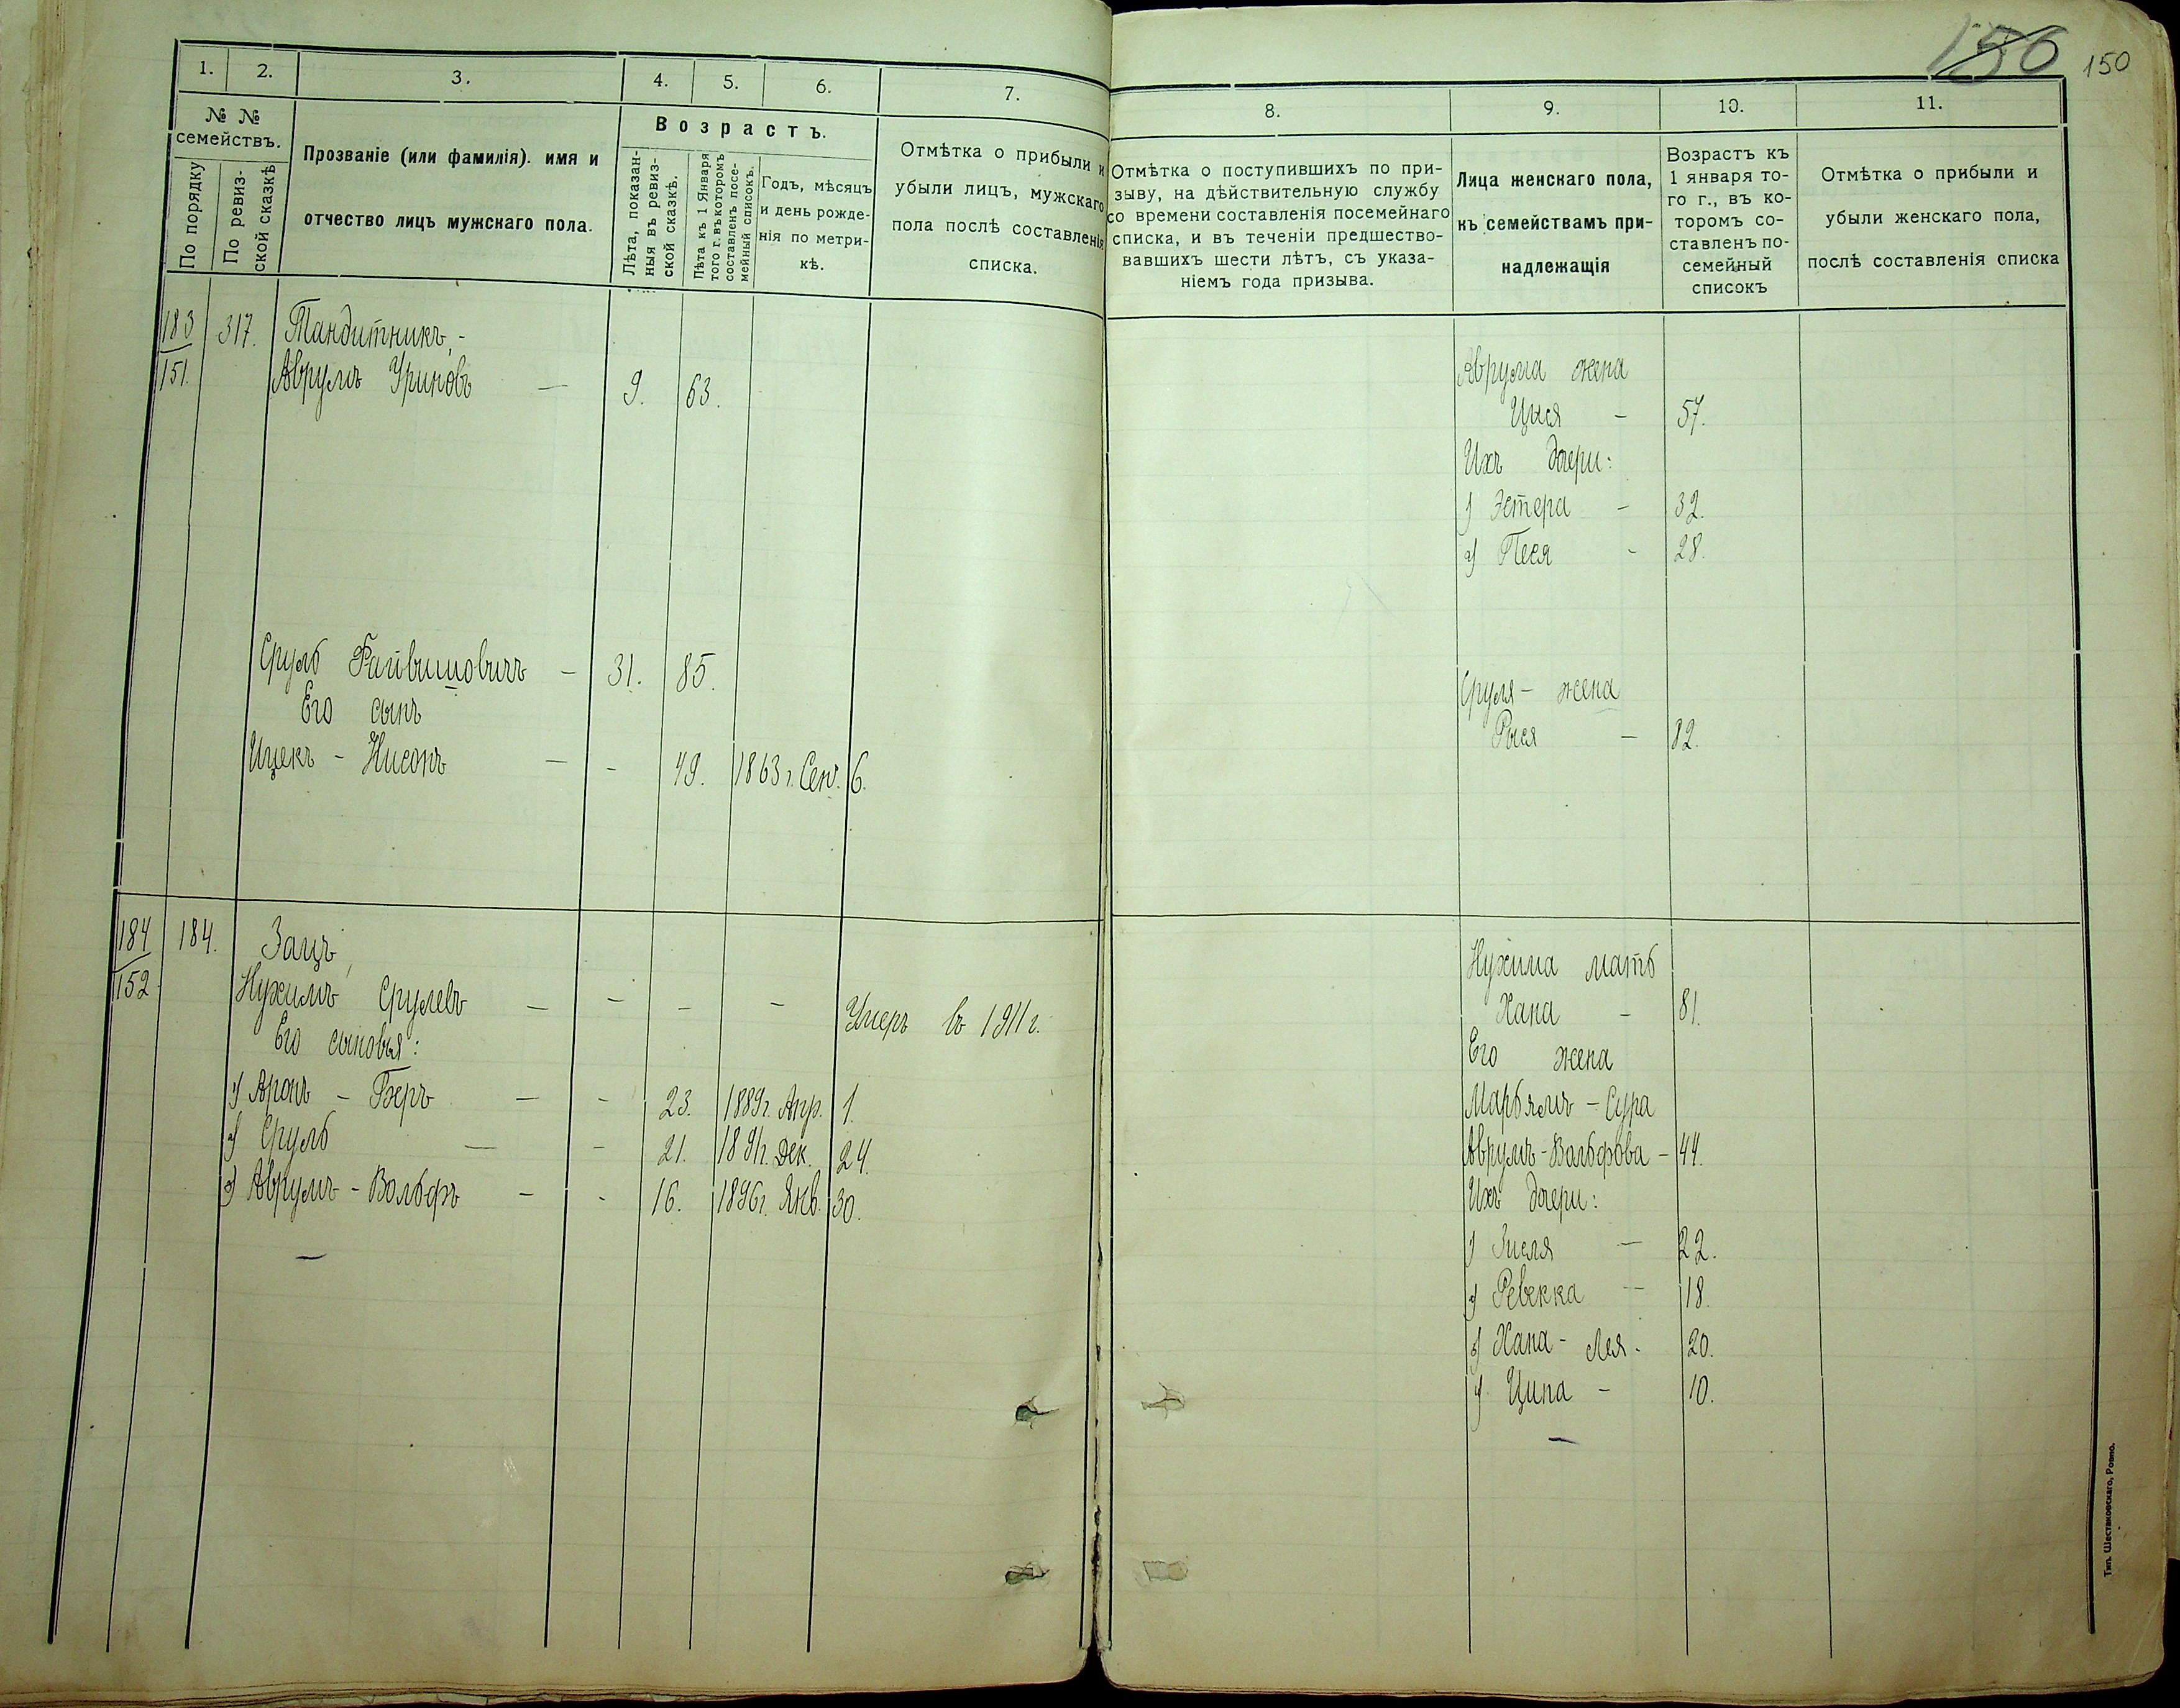 150
1. 2. 3. 4. 5. 6. 7.
№ № семействъ.
По порядку
По ревизской сказкѣ
Прозваніе (или фамилія). имя и
отчество лицъ мужскаго пола.
Возрастъ.
Лѣта, показан-
ныя въ ревиз-
ской сказкѣ.
Лѣта къ 1 Января
того г. въ которомъ
составленъ посе-
мейный списокъ.
Годъ, мѣсяцъ
и день рожде-
нія по метри-
кѣ.
Отмѣтка о прибыли и
убыли лицъ, мужскаго
пола послѣ составленія
списка.
183 317. Тандитникъ,-
151. Аврумъ Уриновъ — 9. 63.
Сруль Файвишовичъ — 31. 85.
Его сынъ
Ицекъ - Нисонъ — - 49. 1863 г. Сен. 6.
184 184. Зацъ,
152. Нухимъ Срулевъ — - - - Умеръ въ 1911 г.
Его сыновья:
1) Аронъ - Беръ — - 23. 1889 г. Апр. 1.
2) Сруль — - 21. 1891 г. Дек. 24.
3) Аврумъ - Вольфъ - - 16. 1896 г. Янв. 30.
8. 9. 10. 11.
Отмѣтка о поступившихъ по при-
зыву, на дѣйствительную службу
со времени составленія посемейнаго
списка, и въ теченіи предшество-
вавшихъ шести лѣтъ, съ указа-
ніемъ года призыва.
Лица женскаго пола,
къ семействамъ при-
надлежащія
Возрастъ къ
1 января то-
го г., въ ко-
торомъ со-
ставленъ по-
семейный
списокъ
Отмѣтка о прибыли и
убыли женскаго пола,
послѣ составленія списка
Аврума жена
Цися - 57.
Ихъ дочери:
1) Эстера - 32.
2) Песя - 28.
Сруля - жена
Рыся — 82.
Нухима мать
Хана - 81.
Его жена
Марьямъ - Сура
Аврумъ-Вольфова - 44.
Ихъ дочери:
1) Зисля — 22.
2) Ревекка — 18.
3) Хана - Лея - 20.
4) Ципа - 10.
Тип. Шестаковскаго, Ровно.